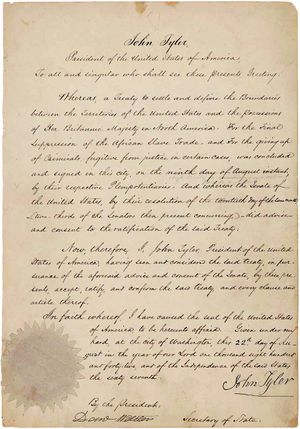 John Tyler,
President of the United States of America,
To all and singular who shall see these Presents Greeting.
Whereas, a Treaty to settle and define the Boundaries
between the Territories of the United States and the possessions
of Her Britannic Majesty in North America. For the Final
Suppression of the African Slave Trade. and For the giving up
of Criminals fugitive from justice in certain cases, was concluded
and signed in this city, on the ninth day of August instant,
by their respective Plenipotentiaries. And whereas the Senate of
the United States, by their resolution of the twentieth day of
two-thirds of the Senators then present concurring, did advise
and consent to the ratification of the said Treaty.
Now therefore, I, John Tyler, President of the United
States of America, having seen and considered the said Treaty, in pur-
suance of the aforesaid advice and consent of the Senate, by these pre-
sents, accept, ratify, and confirm the said treaty, and every clause and
article thereof.
In faith whereof, I have caused the seal of the United States
of America to be hereunto affixed. Given under my
hand, at the city of Washington, the 22d day of Au-
gust in the year of our Lord one thousand eight hundred
and forty-two, and of the Independence of the said States,
the sixty seventh.
John Tyler
By the President,
Secretary of State.